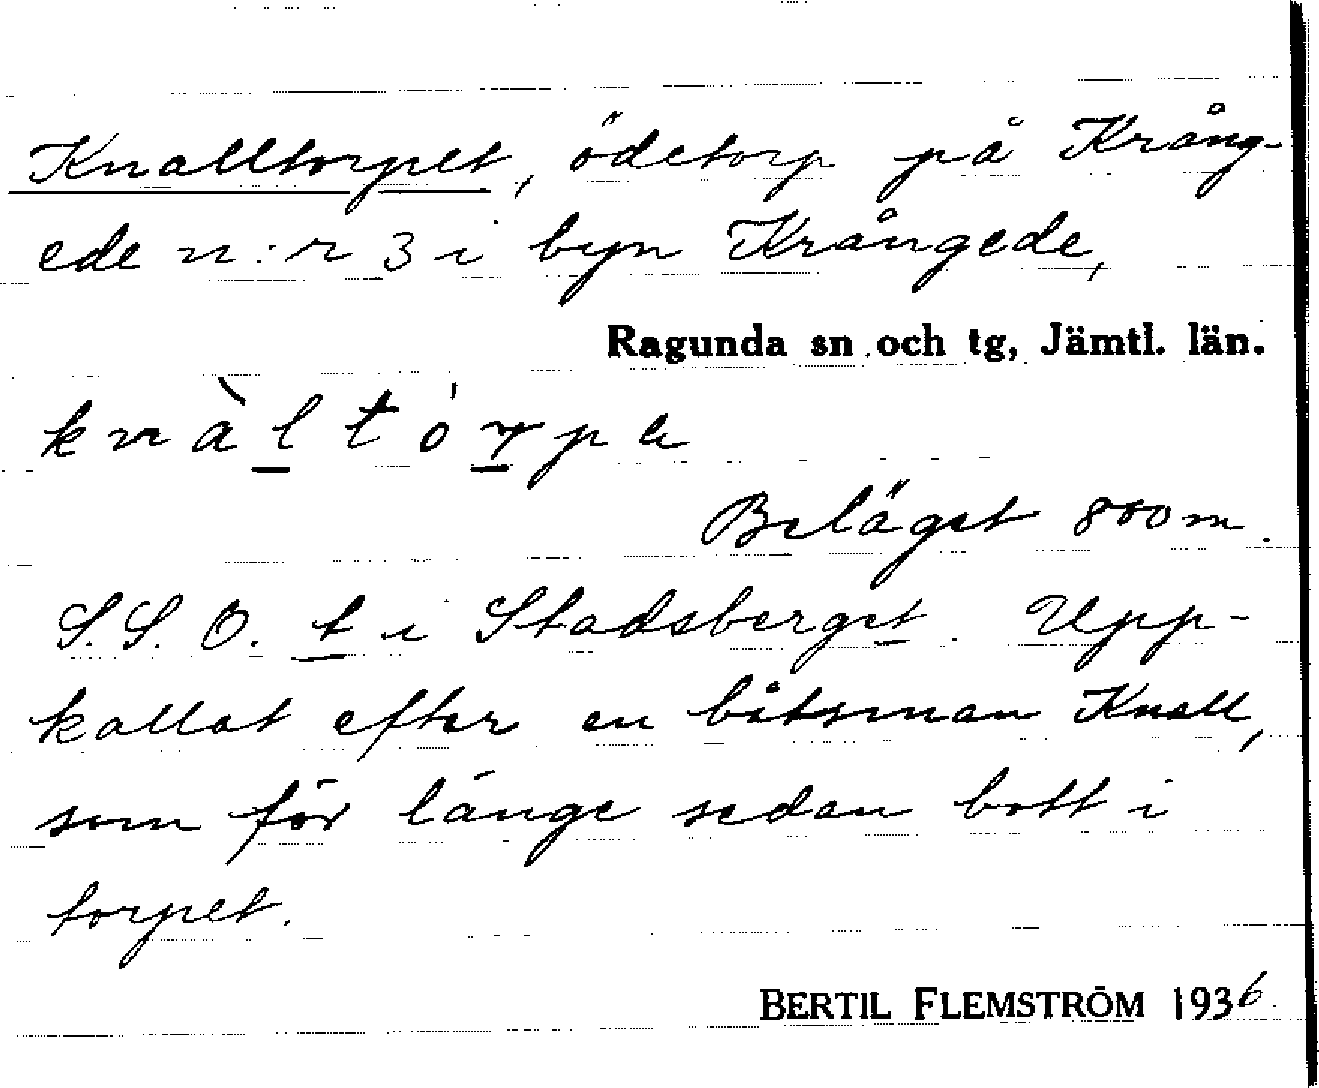 Knalltorpet, ödetorp på Krång-
ede n:r 3 i byn Krångede,
Ragunda sn och tg, Jämtl. län.
knàltórpe
Beläget 800 m.
S.S.O. t i Stadsberget. Upp-
kallat efter en båtsman Knall,
som för länge sedan bott i
torpet.
BERTIL FLEMSTRÖM 1936